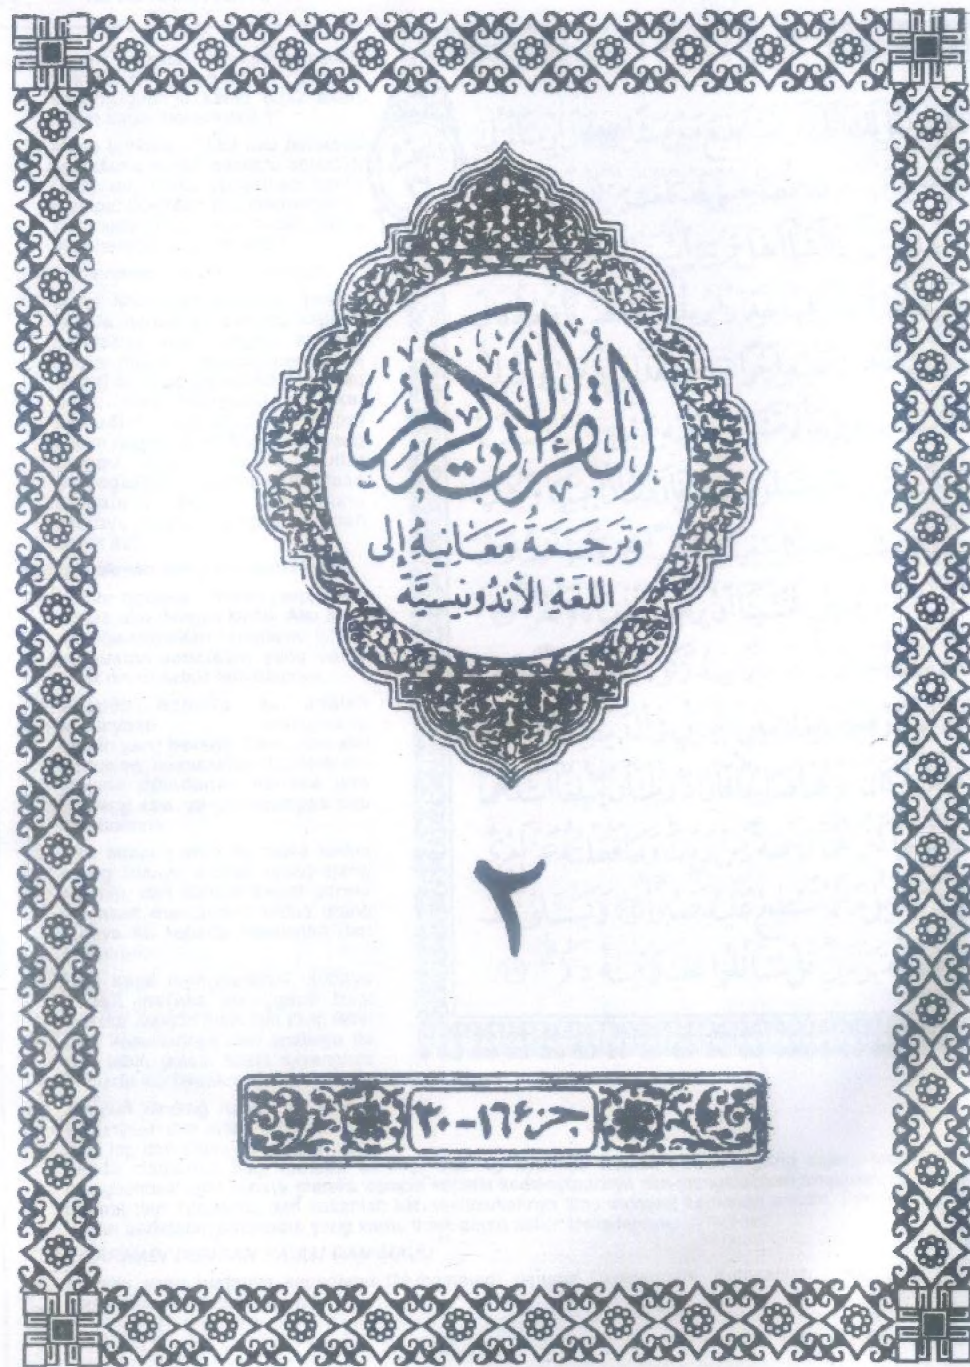 القرآن الكريم
وَتَرجَمَةُ مَعَانِيهِ إِلى
اللغَةِ الأندُونِيسِيَّة
٢
جزء ١٦-٣٠